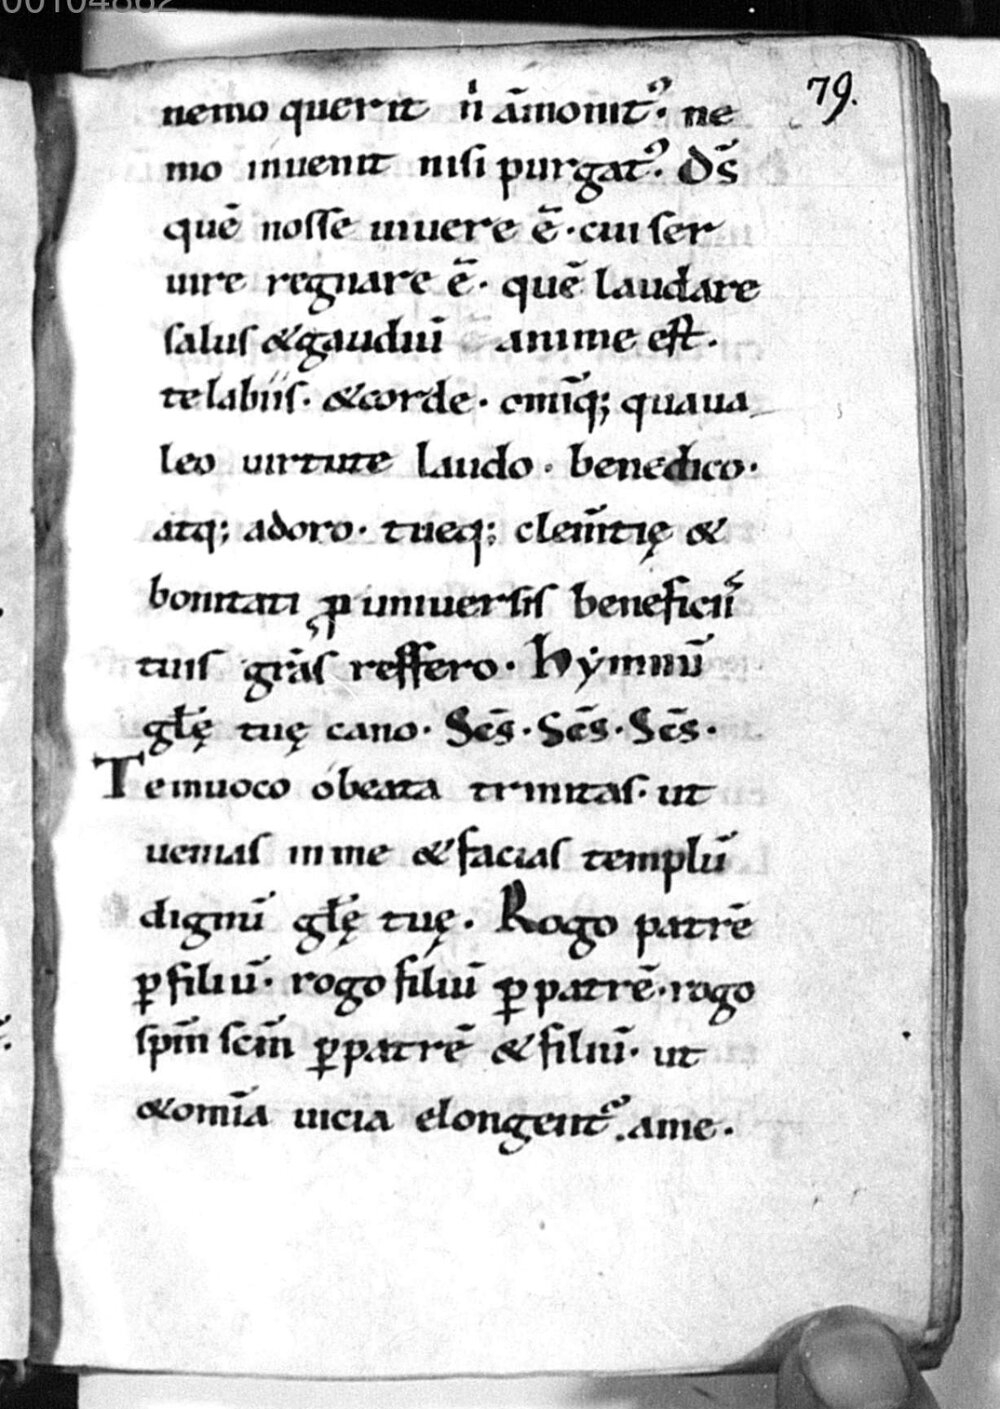 00104862
79.
nemo querit n̄ ām̄onit᷒. ne
mo inuenit nisi purgat᷒. Ds̄
quē nosse uiuere ē. cui ser
uire regnare ē. quē laudare
salus & gaudiū anime est.
te labiis. & corde. om̄iq; qua ua
leo uirtute laudo. benedico.
atq; adoro. tueq; clem̄tię &
bonitati ꝓ uniuersis beneficiis
tuis grās reffero. hẏmnū
glę tuę cano. Scs̄. Scs̄. Scs̄.
Te inuoco óbeata trinitas. ut
uenias in me & facias templū
dignū glę tuę. Rogo patrē
ꝑ filiū. rogo filiū ꝑ patrē. rogo
spm̄ scm̄ ꝑ patrē & filiū. ut
& om̄ia uicia elongent᷒. a me.